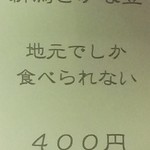 地元でしか
食べられない
４００円